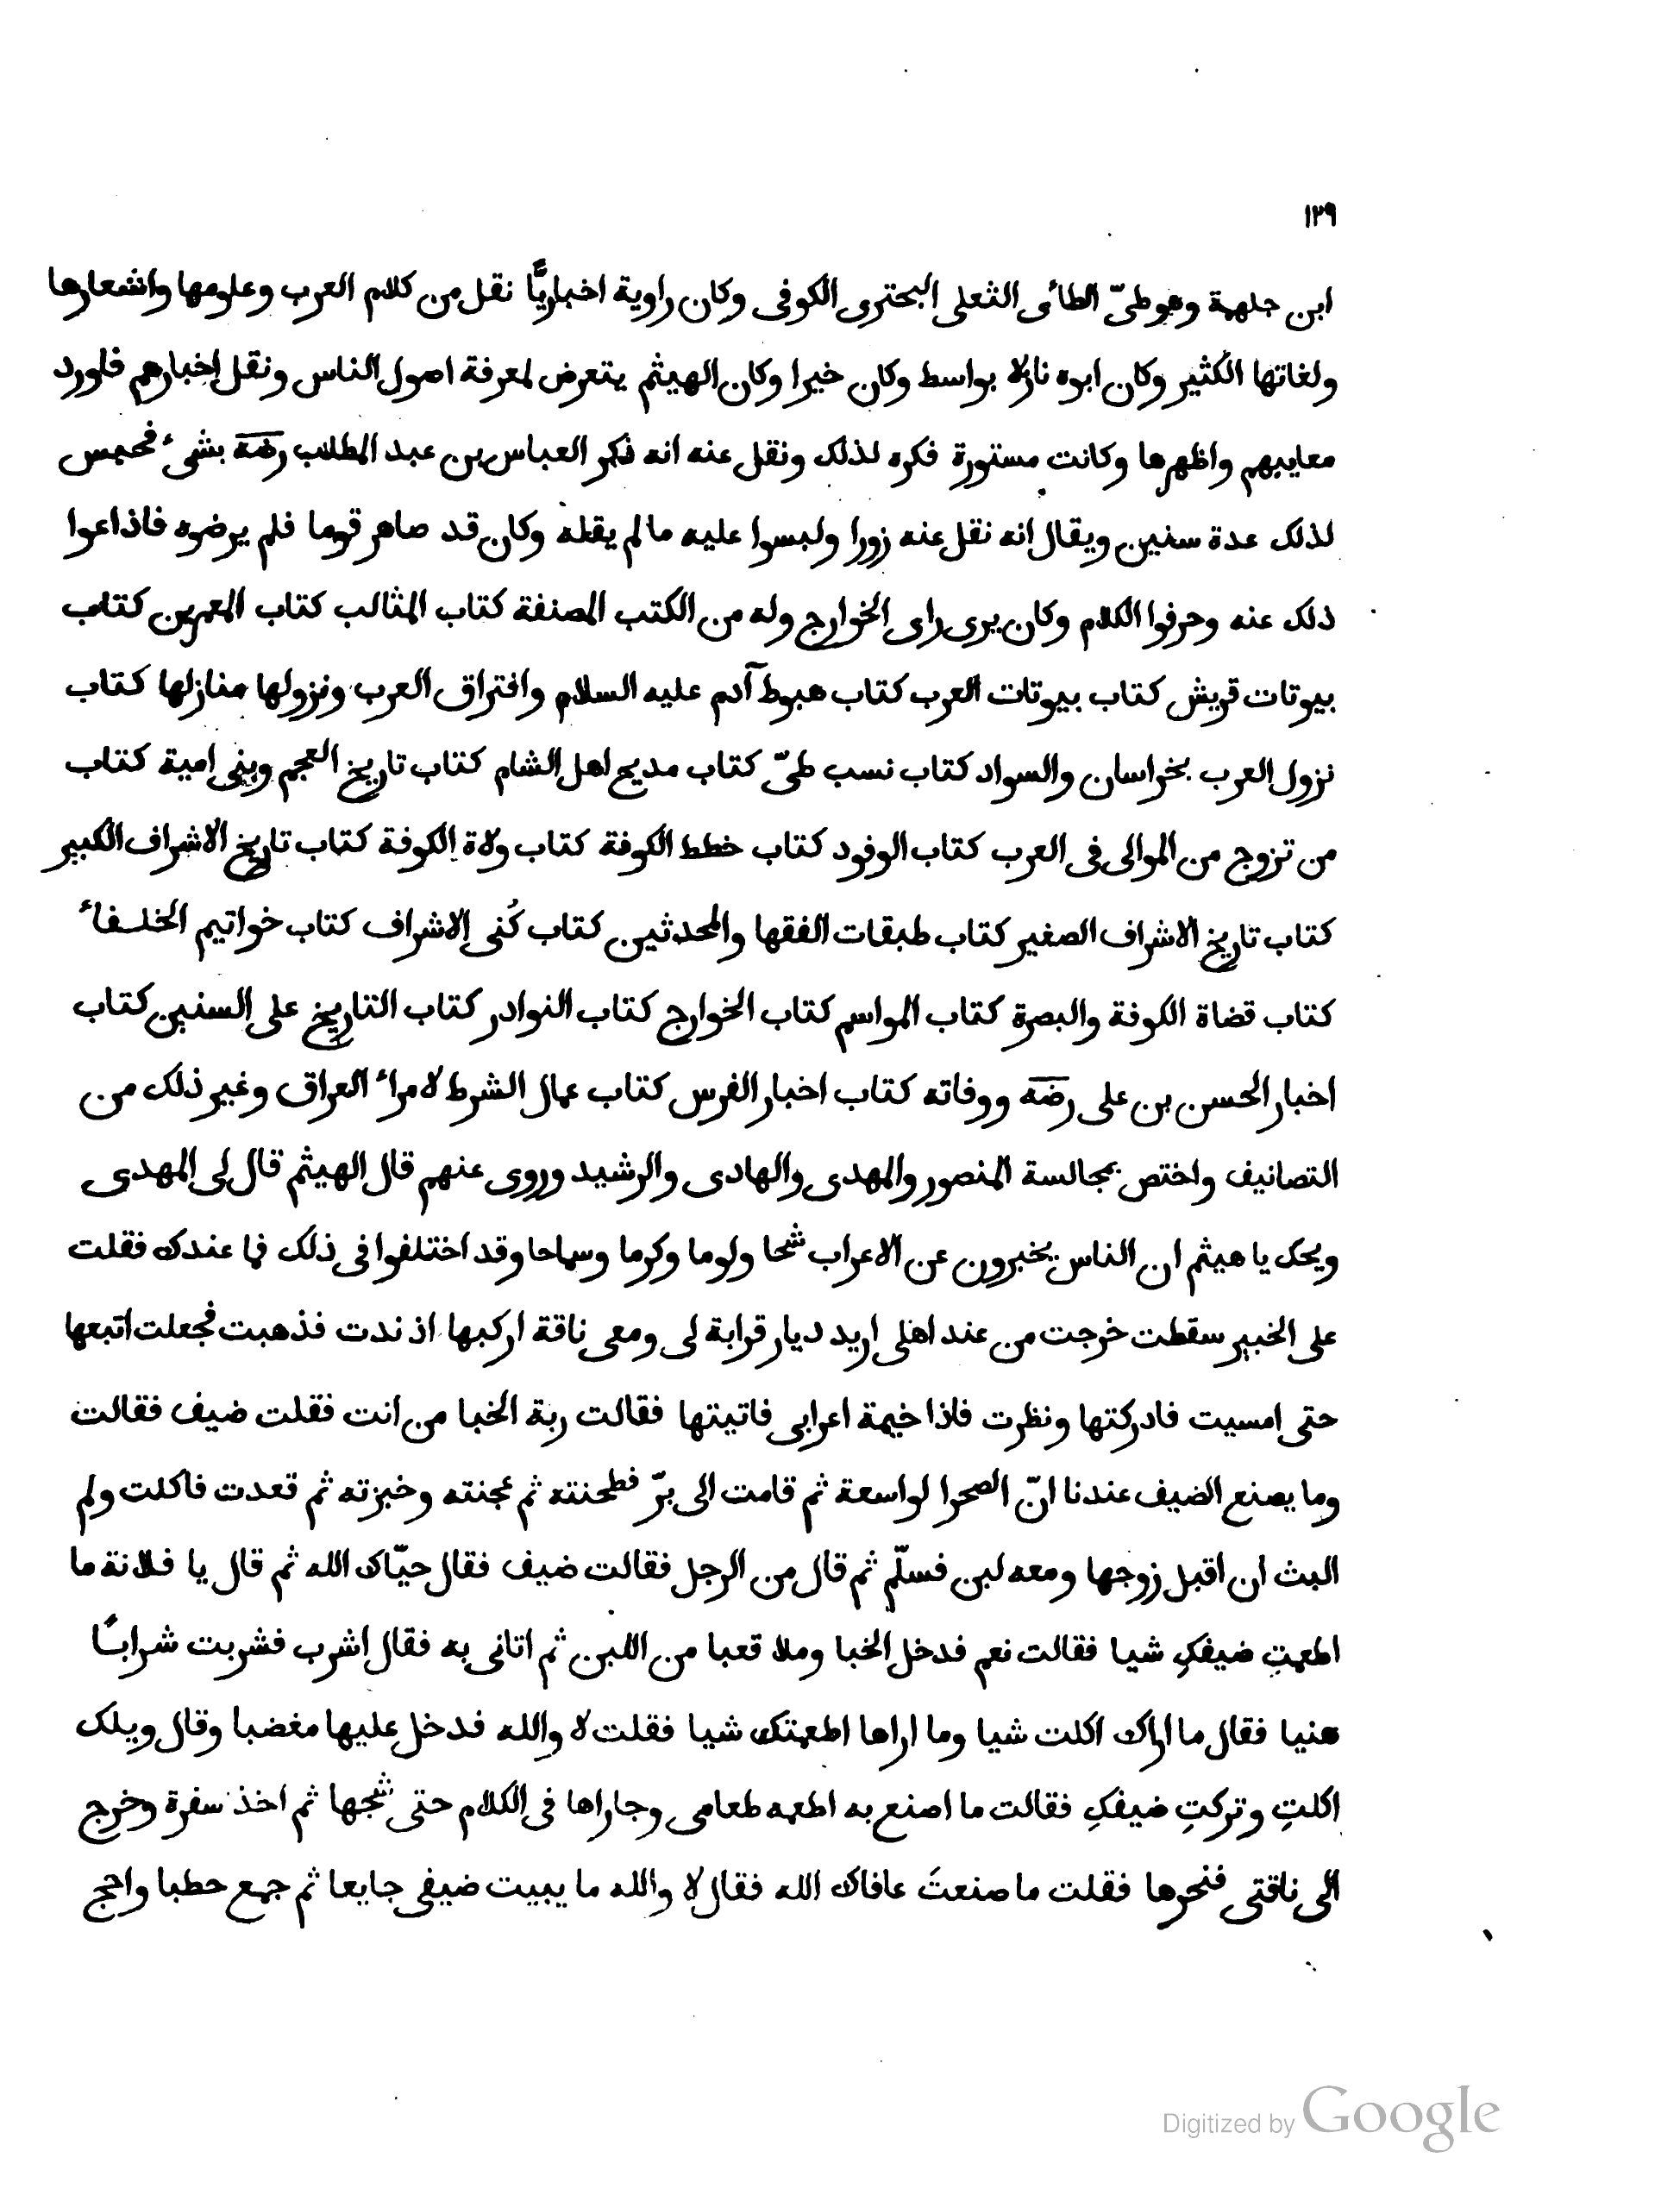 ١٢٩
ابن جلهمة وهو طىّ الطائى الثعلى البحترى الكوفى وكان راوية اخباريًّا نقل من كلام العرب وعلومها واشعارها
ولغاتها الكثير وكان ابوه نازلا بواسط وكان خيرا وكان الهيثم يتعرض لمعرفة اصول الناس ونقل اخبارهم فاورد
معايبهم واظهرها وكانت مستورة فكره لذلك ونقل عنه انه ذكر العباس بن عبد المطلب رضه بشىء فحبس
لذلك عدة سنين ويقال انه نقل عنه زورا ولبسوا عليه ما لم يقله وكان قد صاهر قوما فلم يرضوه فاذاعوا
ذلك عنه وحرفوا الكلام وكان يرى راى الخوارج وله من الكتب المصنفة كتاب المثالب كتاب المعمرين كتاب
بيوتات قريش كتاب بيوتات العرب كتاب هبوط آدم عليه السلام وافتراق العرب ونزولها منازلها كتاب
نزول العرب بخراسان والسواد كتاب نسب طىّ كتاب مديح اهل الشام كتاب تاريخ العجم وبنى امية كتاب
من تزوج من الموالى فى العرب كتاب الوفود كتاب خطط الكوفة كتاب ولاة الكوفة كتاب تاريخ الاشراف الكبير
كتاب تاريخ الاشراف الصغير كتاب طبقات الفقها والمحدثين كتاب كُنى الاشراف كتاب خواتيم الخلفاء
كتاب قضاة الكوفة والبصرة كتاب المواسم كتاب الخوارج كتاب النوادر كتاب التاريخ على السنين كتاب
اخبار الحسن بن على رضه ووفاته كتاب اخبار الفرس كتاب عمال الشرط لامراء العراق وغير ذلك من
التصانيف واختص بمجالسة المنصور والمهدى والهادى والرشيد وروى عنهم قال الهيثم قال لى المهدى
ويحك يا هيثم ان الناس يخبرون عن الاعراب شحا ولوما وكرما وسماحا وقد اختلفوا فى ذلك فما عندك فقلت
على الخبير سقطت خرجت من عند اهلى اريد ديار قرابة لى ومعى ناقة اركبها اذ ندت فذهبت فجعلت اتبعها
حتى امسيت فادركتها ونظرت فاذا خيمة اعرابى فاتيتها فقالت ربة الخبا من انت فقلت ضيف فقالت
وما يصنع الضيف عندنا انّ الصحرا لواسعة ثم قامت الى برّ فطحنته ثم عجنته وخبزته ثم قعدت فاكلت ولم
البث ان اقبل زوجها ومعه لبن فسلّم ثم قال من الرجل فقالت ضيف فقال حيّاك الله ثم قال يا فلانة ما
اطعمتِ ضيفكِ شيا فقالت نعم فدخل الخبا وملا قعبا من اللبن ثم اتانى به فقال اشرب فشربت شرابًا
هنيا فقال ما اراك اكلت شيا وما اراها اطعمتك شيا فقلت لا والله فدخل عليها مغضبا وقال ويلك
اكلتِ وتركتِ ضيفكِ فقالت ما اصنع به اطعمه طعامى وجاراها فى الكلام حتى شجها ثم اخذ سفرة وخرج
الى ناقتى فنحرها فقلت ما صنعتَ عافاك الله فقال لا والله ما يبيت ضيفى جايعا ثم جمع حطبا واجج
Digitized by Google